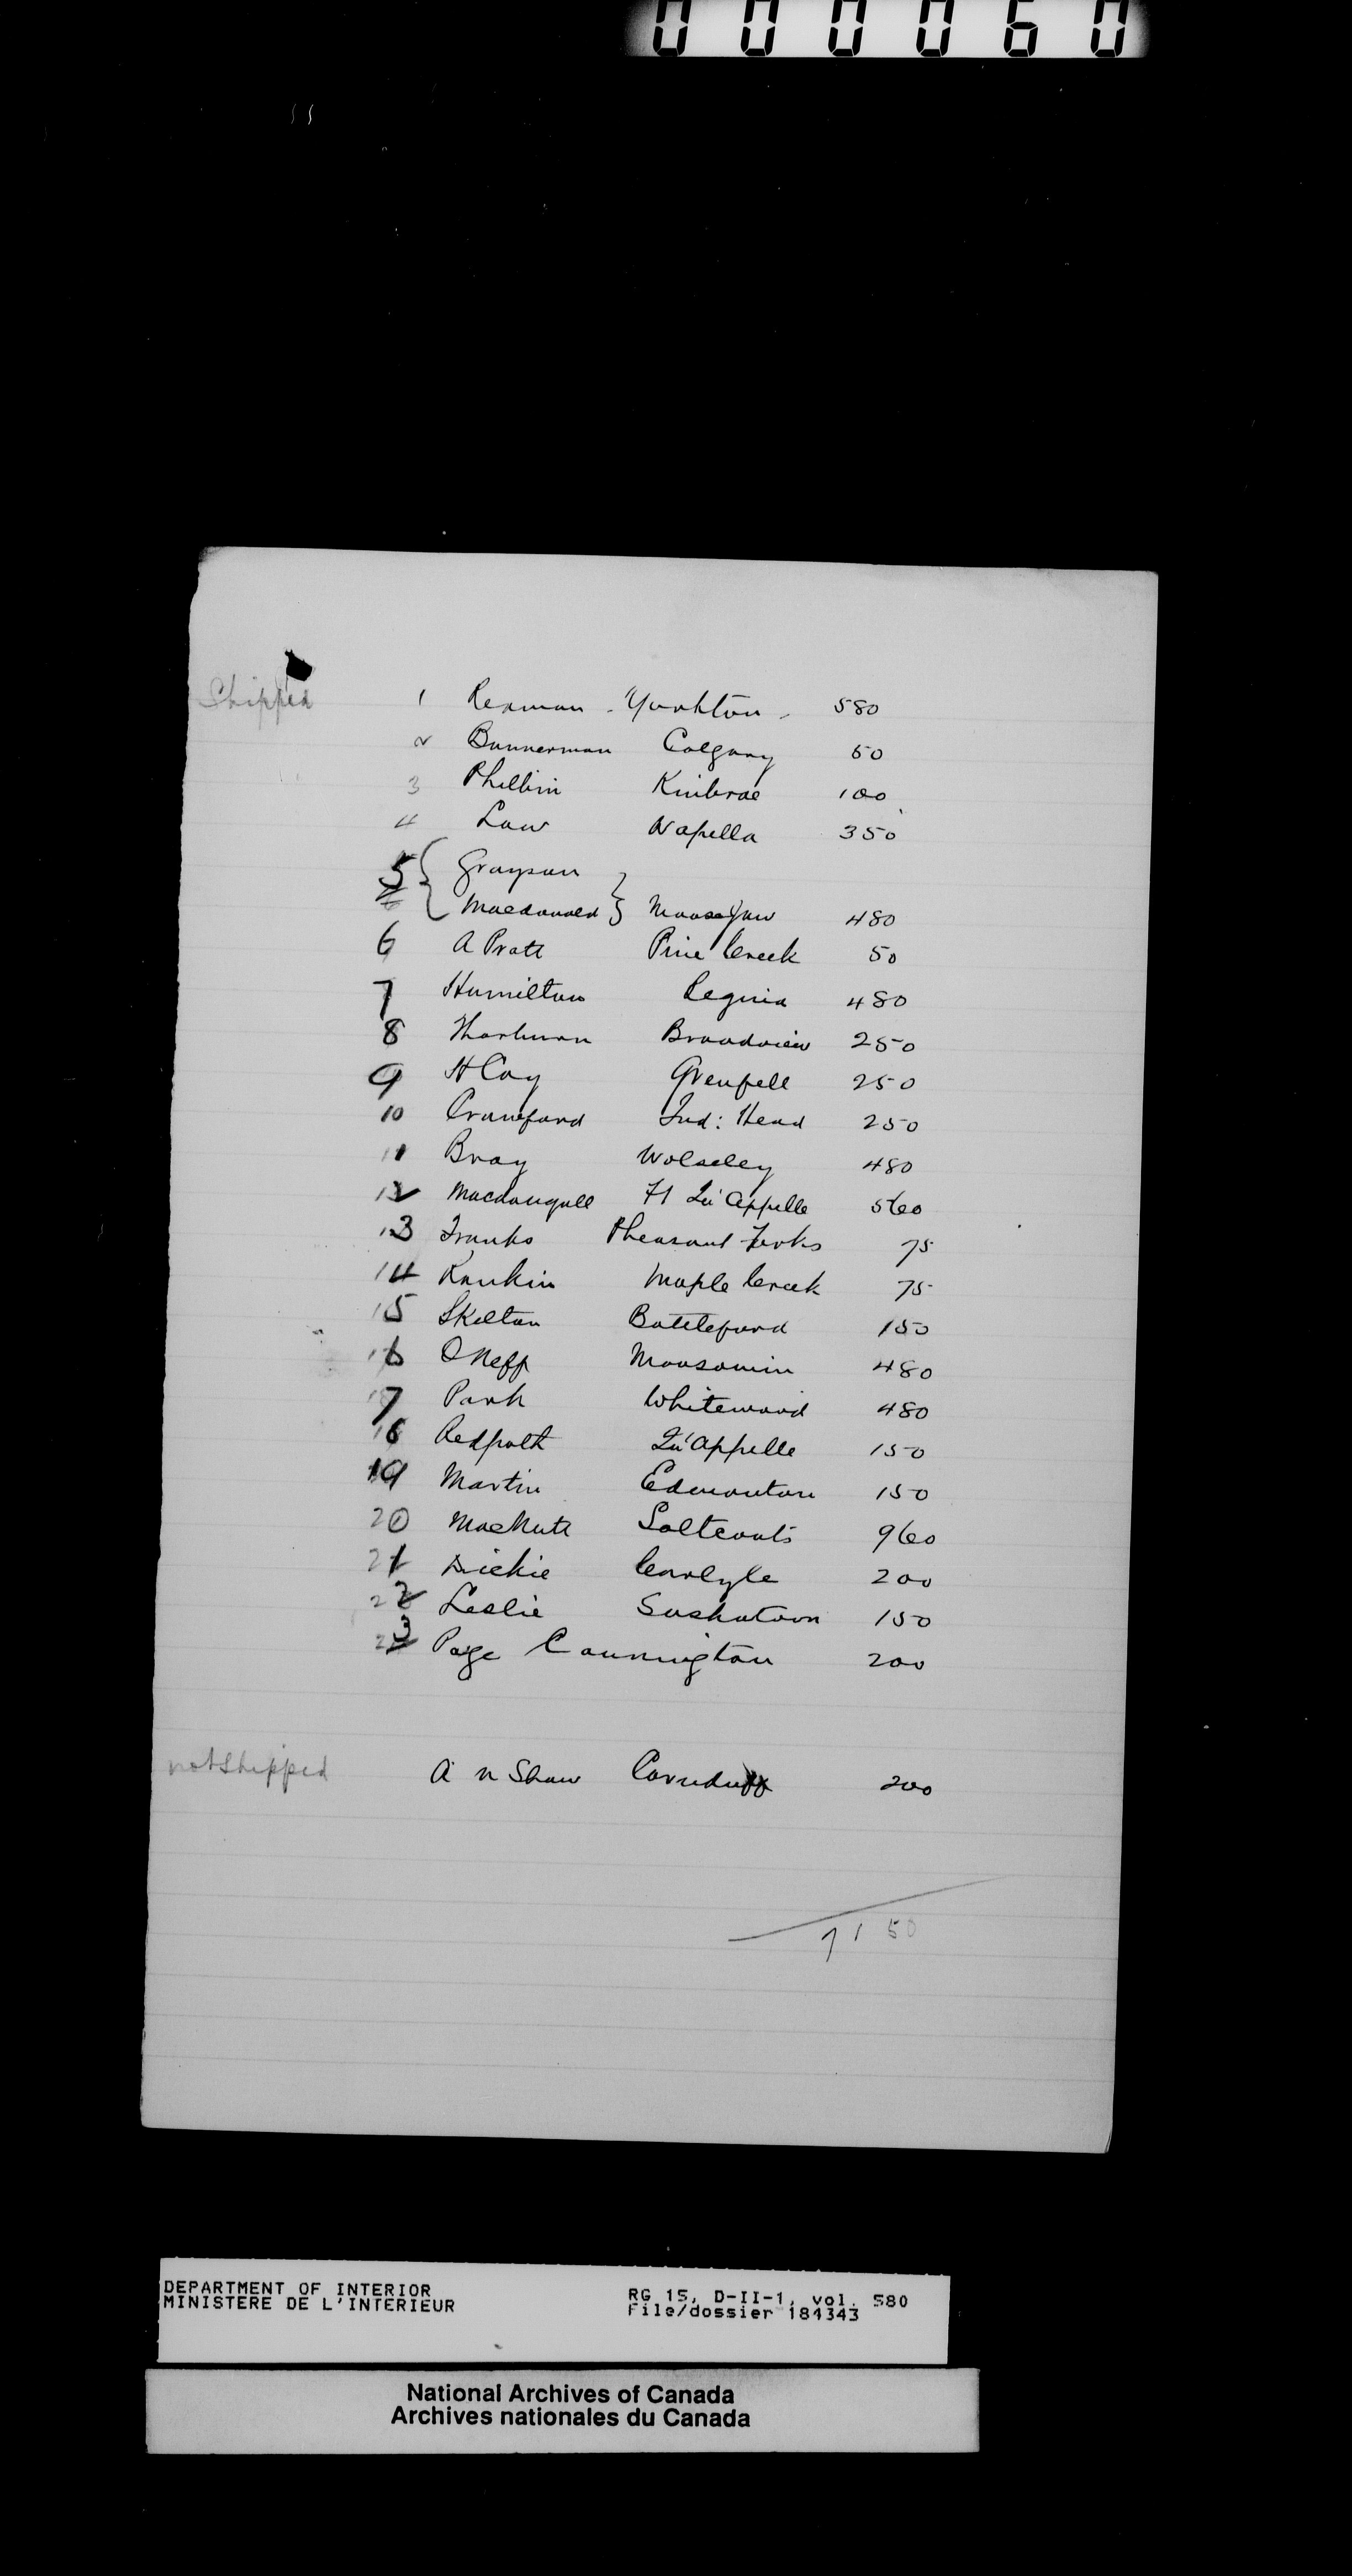 000060
Shipped 1 Rexman - Yorkton - 580
2 Bannerman Calgary 50
3 Philbin Kinbrae 100
4 Law Wapella 350
5 { Grayson
Macdonald } Moose Jaw 480
6 A Pratt Pine Creek 50
7 Hamilton Regina 480
8 Thorburn Broadview 250
9 H Cay Grenfell 250
10 Crawford Ind: Head 250
11 Bray Wolseley 480
12 Macdougall Ft Qu'Appelle 560
13 Franks Pheasant Forks 75
14 Rankin Maple Creek 75
15 Skelton Battleford 150
16 O Neff Moosomin 480
17 Park Whitewood 480
18 Redpath Qu'Appelle 150
19 Martin Edmonton 150
20 MacNutt Saltcoats 960
21 Dickie Carlyle 200
22 Leslie Saskatoon 150
23 Page Cannington 200
not shipped A N Shaw Carnduff 200
7150
DEPARTMENT OF INTERIOR RG 15, D-II-1, vol. 580
MINISTERE DE L'INTERIEUR File/dossier 184343
National Archives of Canada
Archives nationales du Canada